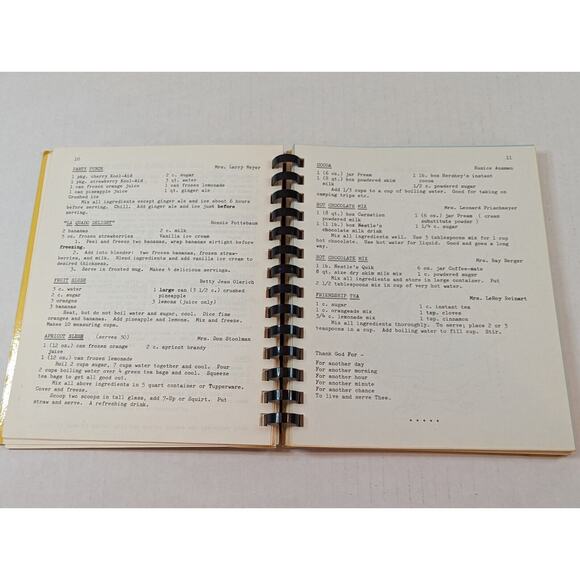 10
PARTY PUNCH Mrs. Larry Meyer
1 pkg. cherry Kool-Aid 2 c. sugar
1 pkg. strawberry Kool-Aid 3 qt. water
1 can frozen orange juice 1 can frozen lemonade
1 can pineapple juice 1 qt. ginger ale
Crushed ice
Mix all ingredients except ginger ale and ice about 6 hours
before serving. Chill. Add ginger ale and ice just before
serving.
"LA QUADO DELIGHT" Bonnie Pottebaum
2 bananas 2 c. milk
5 oz. frozen strawberries Vanilla ice cream
1. Peel and freeze two bananas, wrap bananas airtight before
freezing.
2. Add into blender: two frozen bananas, frozen straw-
berries, and milk. Blend ingredients and add vanilla ice cream to
desired thickness.
3. Serve in frosted mug. Makes 4 delicious servings.
FRUIT SLUSH Betty Jean Olerich
3 c. water 1 large can (3 1/2 c.) crushed
2 c. sugar pineapple
3 oranges 3 lemons (juice only)
3 bananas
Heat, but do not boil water and sugar, cool. Dice fine
oranges and bananas. Add pineapple and lemons. Mix and freeze.
Makes 10 measuring cups.
APRICOT SLUSH (serves 50) Mrs. Don Stoolman
1 (12 oz.) can frozen orange 2 c. apricot brandy
juice
1 (12 oz.) can frozen lemonade
Boil 2 cups sugar, 7 cups water together and cool. Pour
2 cups boiling water over 4 green tea bags and cool. Squeeze
tea bags to get all good out.
Mix all above ingredients in 5 quart container or Tupperware.
Cover and freeze.
Scoop two scoops in tall glass, add 7-Up or Squirt. Put
straw and serve. A refreshing drink.
11
COCOA Eunice Assmen
1 (6 oz.) jar Pream 1 lb. box Hershey's instant
1 (8 qt.) box powdered skim cocoa
milk 1/2 c. powdered sugar
Add 1/3 cups to a cup of boiling water. Good for taking on
camping trips etc.
HOT CHOCOLATE MIX Mrs. Leonard Prischmeyer
1 (8 qt.) box Carnation 1 (6 oz.) jar Pream ( cream
powdered milk substitute powder )
1 lb. box Nestle's 1 1/4 c. sugar
chocolate milk drink
Mix all ingredients well. Use 3 tablespoons mix for 1 cup
hot chocolate. Use hot water for liquid. Good and goes a long
way.
HOT CHOCOLATE MIX Mrs. Ray Berger
1 lb. Nestle's Quik 6 oz. jar Coffee-mate
8 qt. size dry skim milk mix 1 c. powdered sugar
Mix all ingredients and store in large container. Put
2 1/2 tablespoons mix in cup of very hot water.
FRIENDSHIP TEA Mrs. LeRoy Reinart
1 c. sugar 1 c. instant tea
1 c. orangeade mix 1 tsp. cloves
3/4 c. lemonade mix 1 tsp. cinnamon
Mix all ingredients thoroughly. To serve; place 2 or 3
teaspoons in a cup. Add boiling water to fill cup. Stir.
Thank God For -
For another day
For another morning
For another hour
For another minute
For another chance
To live and serve Thee.
* * * * *